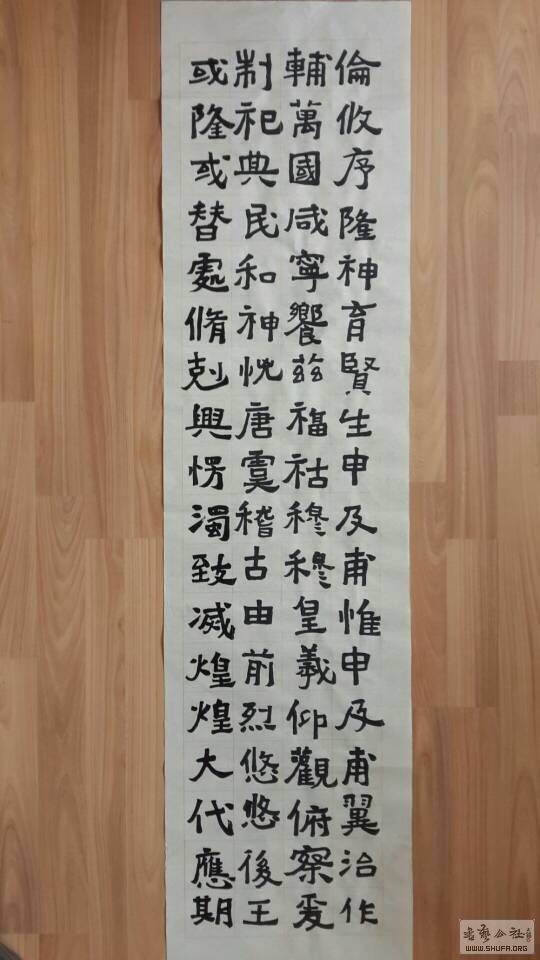 倫攸序隆神育賢生申及甫惟申及甫翼治作
輔萬國咸寧饗茲福祜穆穆皇羲仰觀俯察爰
制祀典民和神悅唐虞稽古由前烈悠悠後王
或隆或替處脩剋興愣濁致滅煌煌大代應期
WWW.SHUFA.ORG